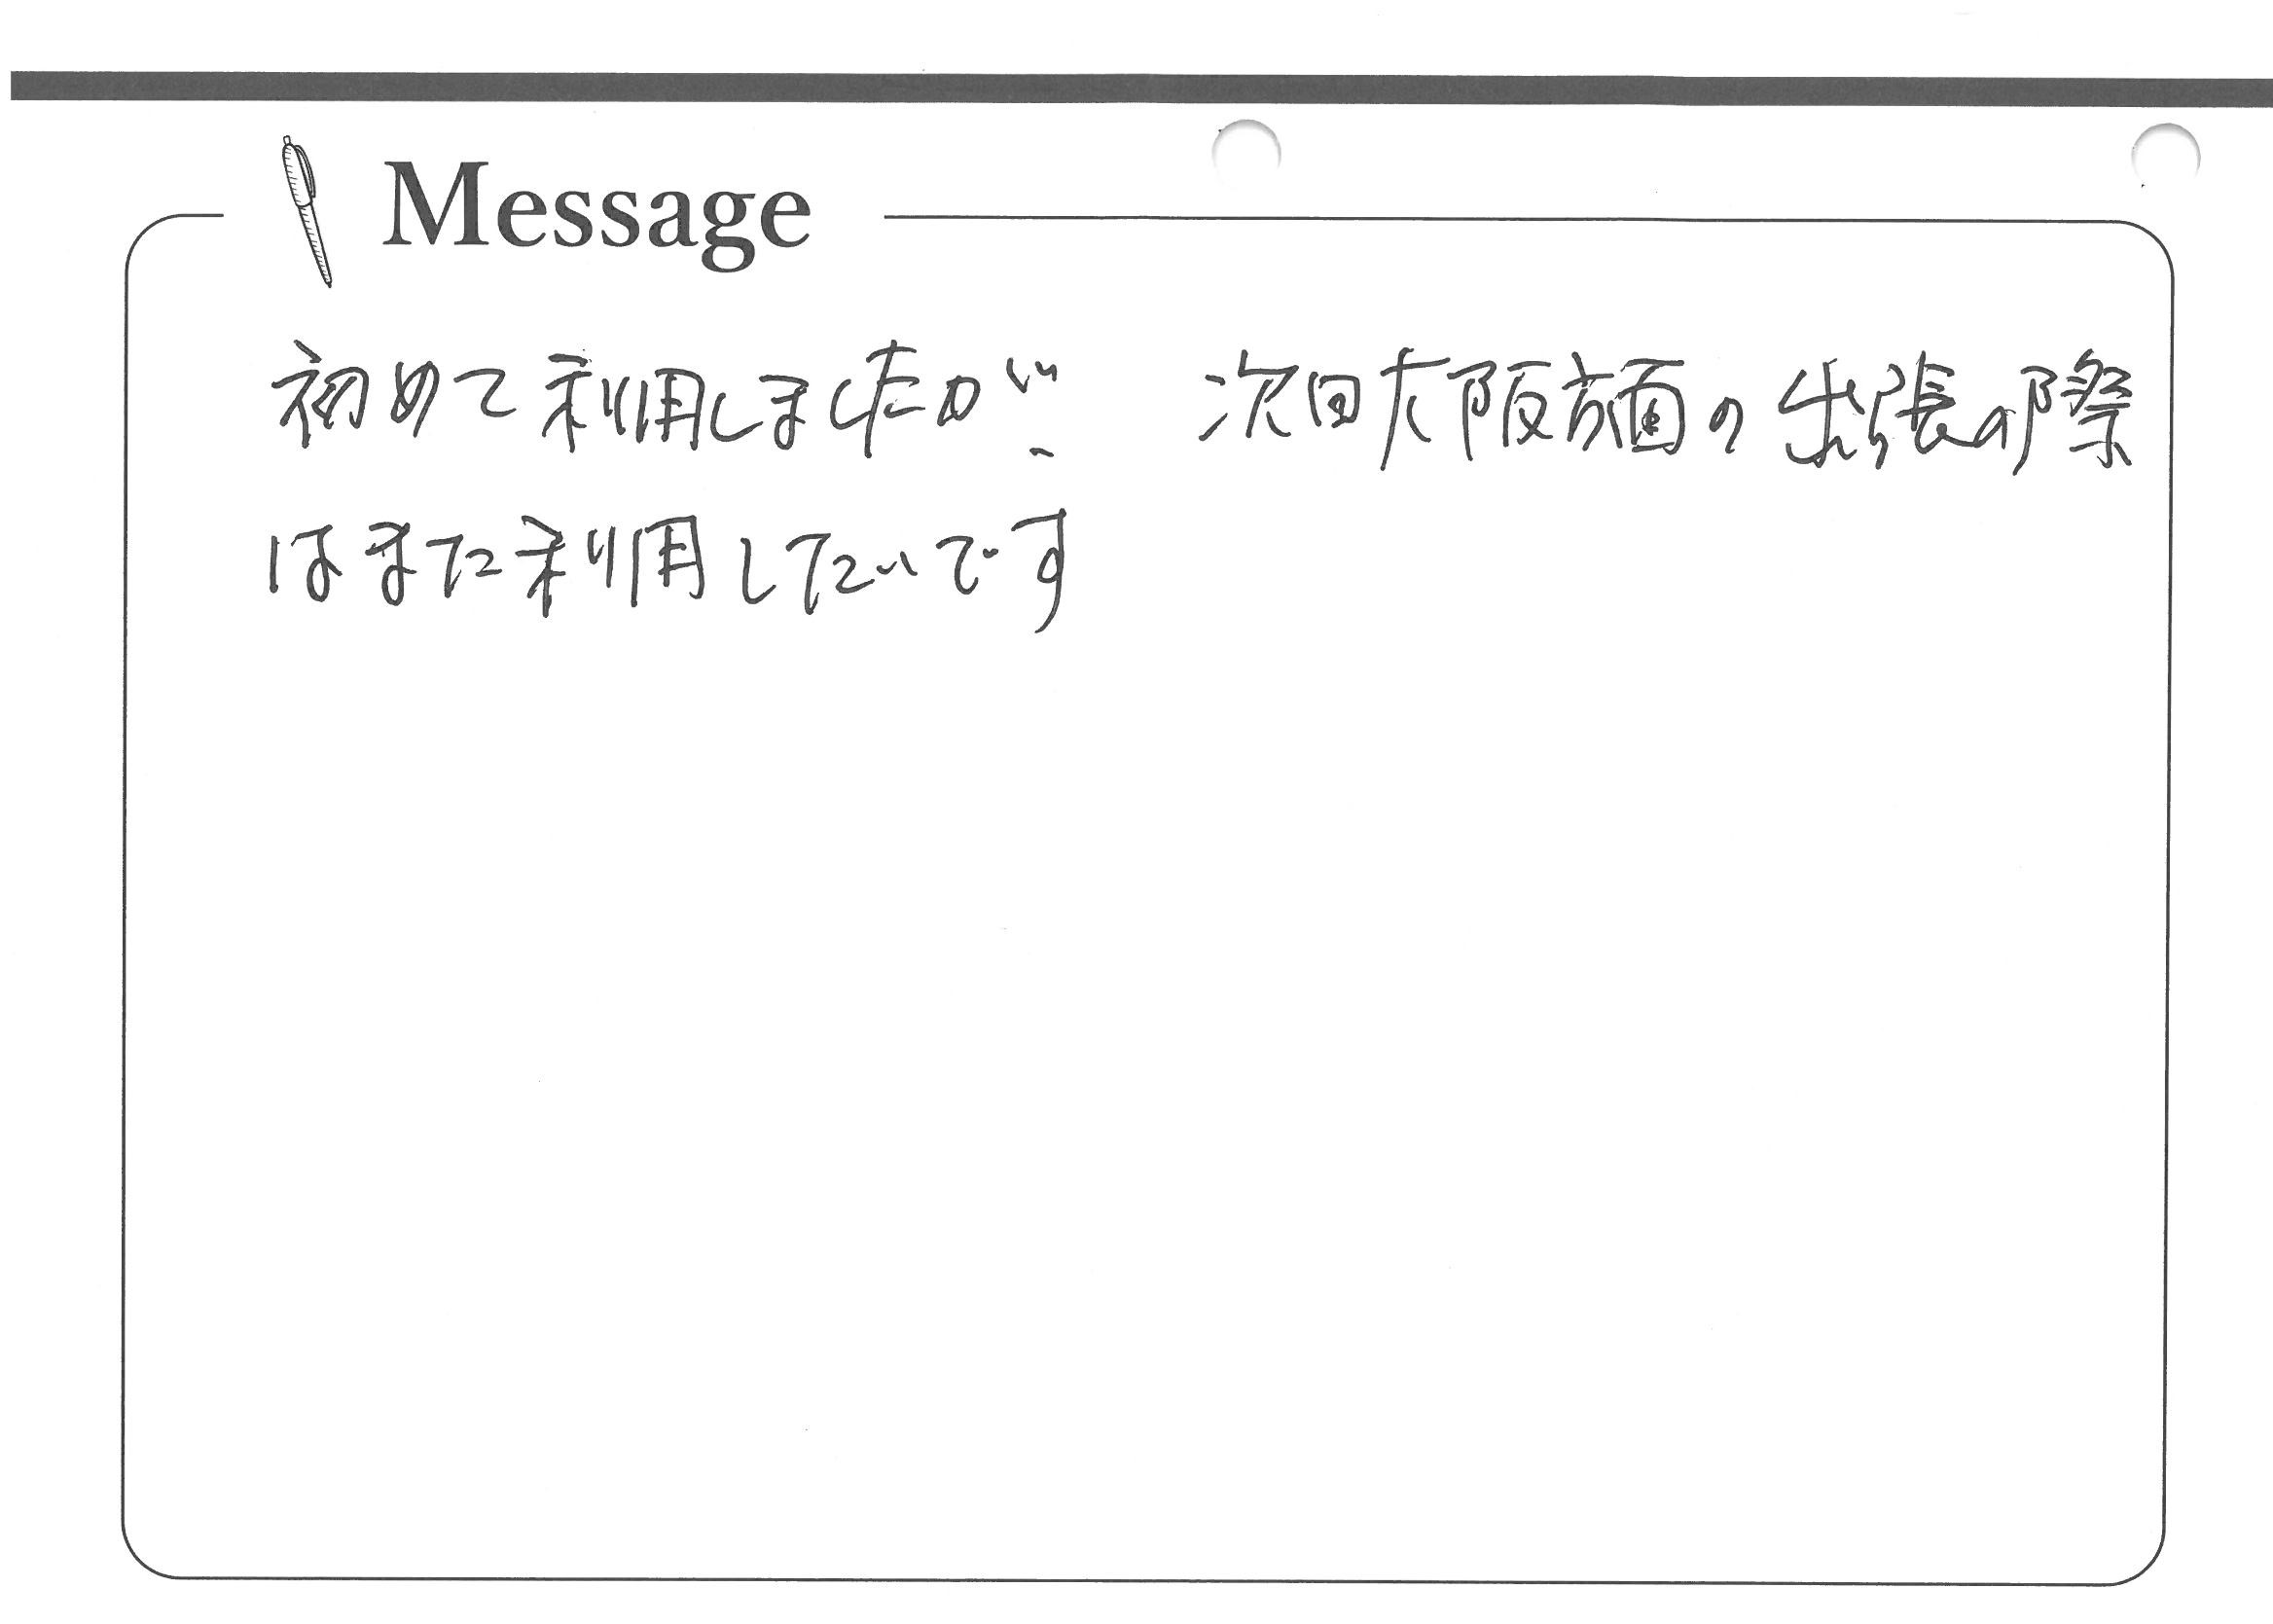 Message
初めて利用しましたが、 次回大阪方面の出張の際
はまた利用したいです